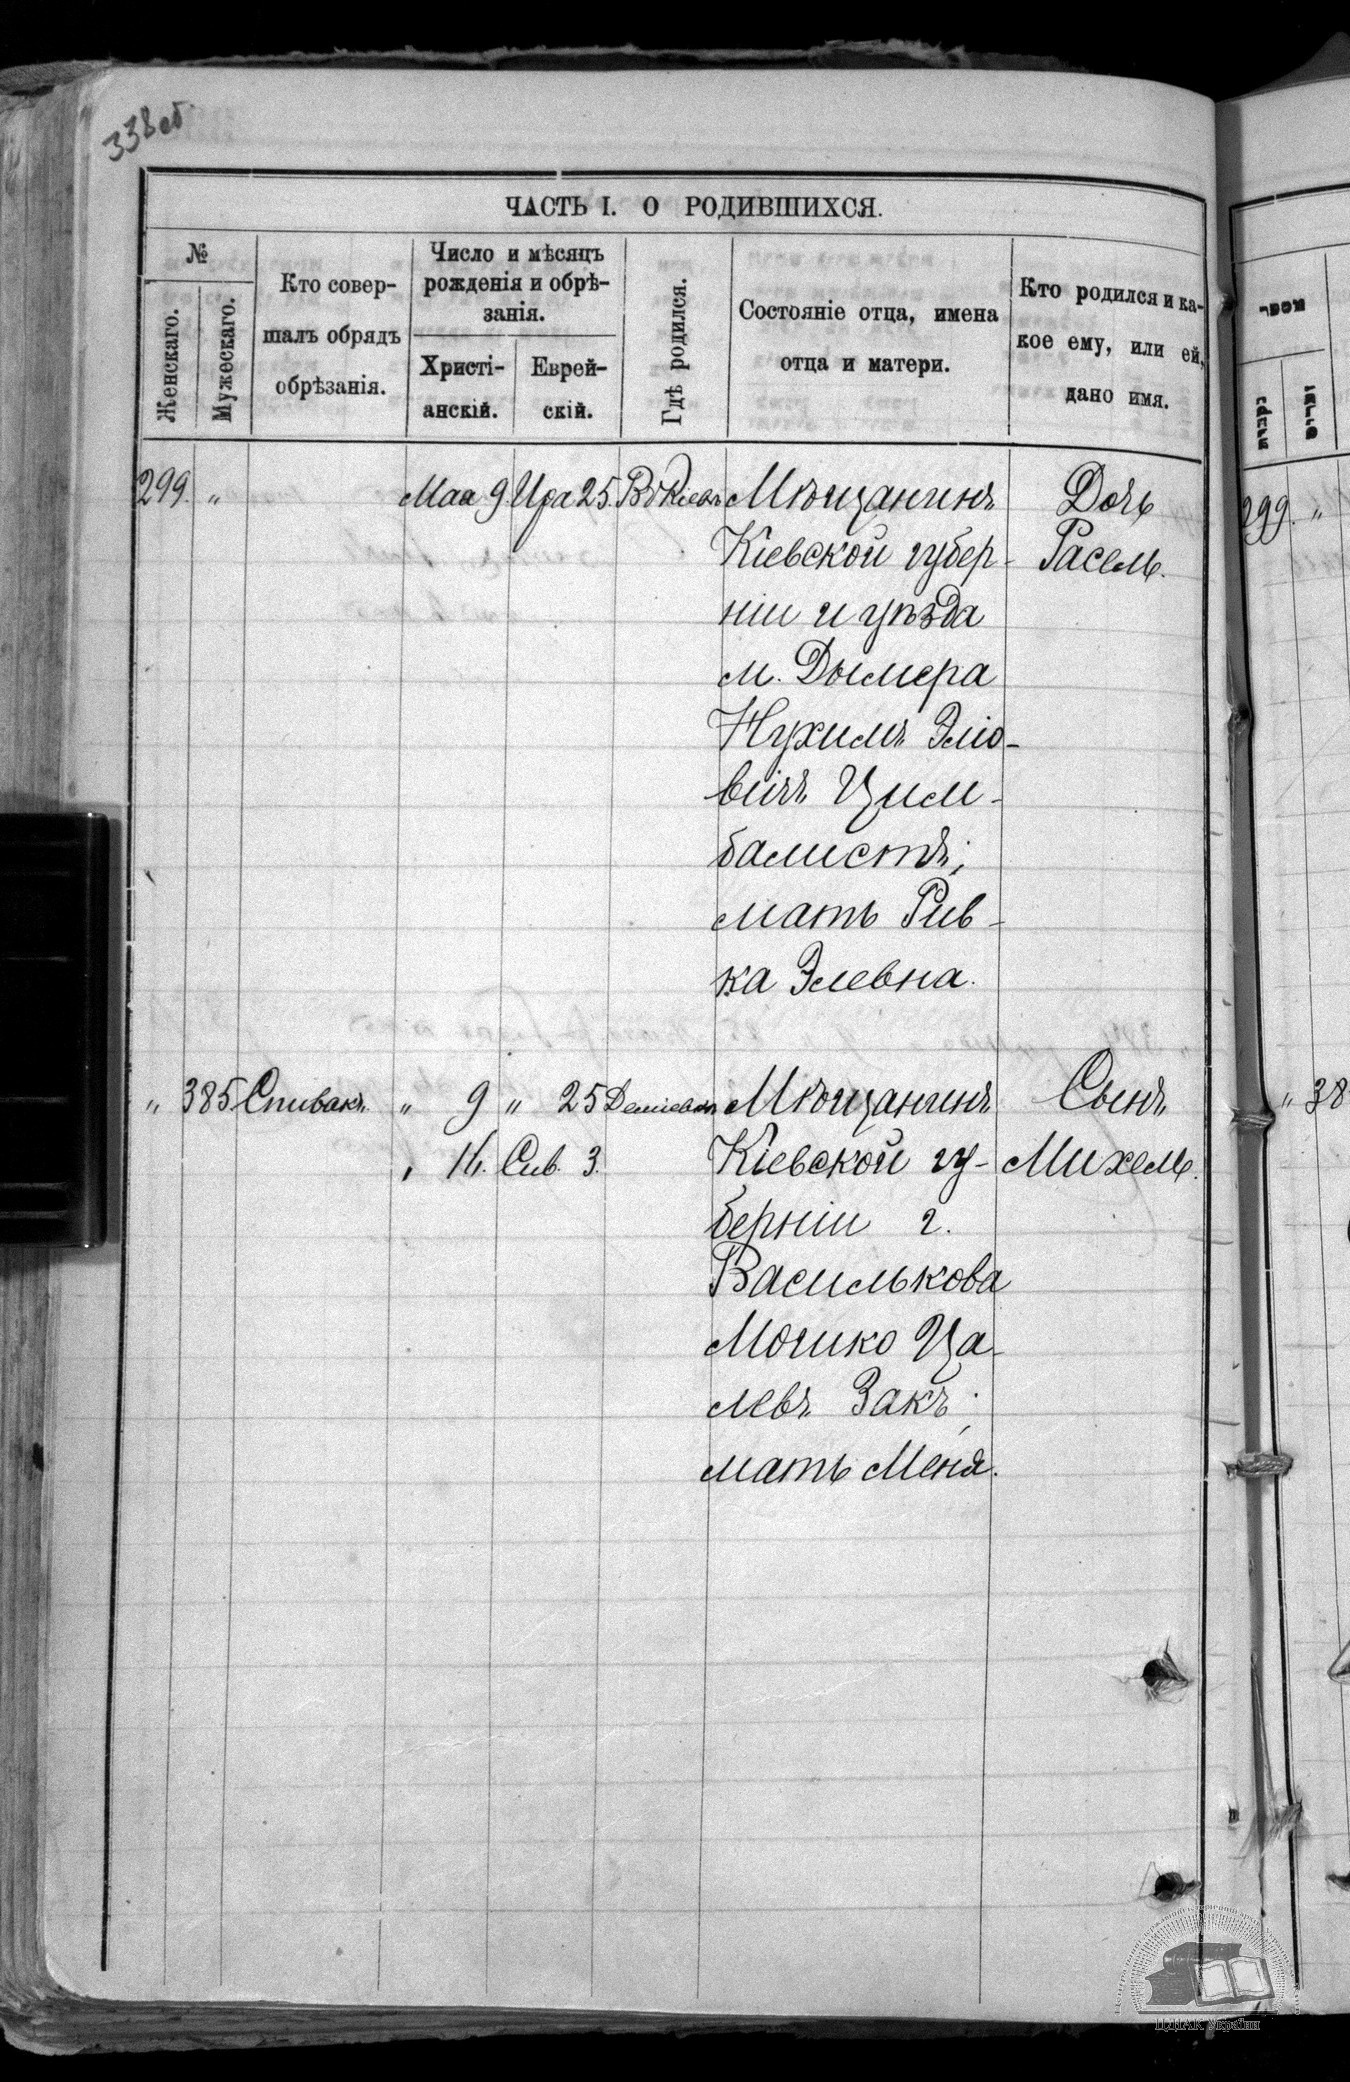 338об
ЧАСТЬ I. О РОДИВШИХСЯ.
№
Женскаго.
Мужескаго.
Кто совер-
шалъ обрядъ
обрѣзанія.
Число и мѣсяцъ
рожденія и обрѣ-
занія.
Христі-
анскій.
Еврей-
скій.
Гдѣ родился.
Состояніе отца, имена
отца и матери.
Кто родился и ка-
кое ему, или ей,
дано имя.
299. „ Мая 9. Ира 25. Въ Кіевѣ Мѣщанинъ Дочь
Кіевской губер- Расель.
ніи и уѣзда
м. Дымера
Нухимъ Эліо-
вичъ Цим-
балистъ;
мать Рив-
ка Элевна.
„ 385 Спивакъ. „ 9 „ 25 Деміевка Мѣщанинъ Сынъ
„ 16. Сив. 3. Кіевской гу- Михель.
берніи г.
Василькова
Мошко Ца-
левъ Закъ;
мать Меня.
נקבות
זכרים
299. „
„ 38
ЦДІАК України